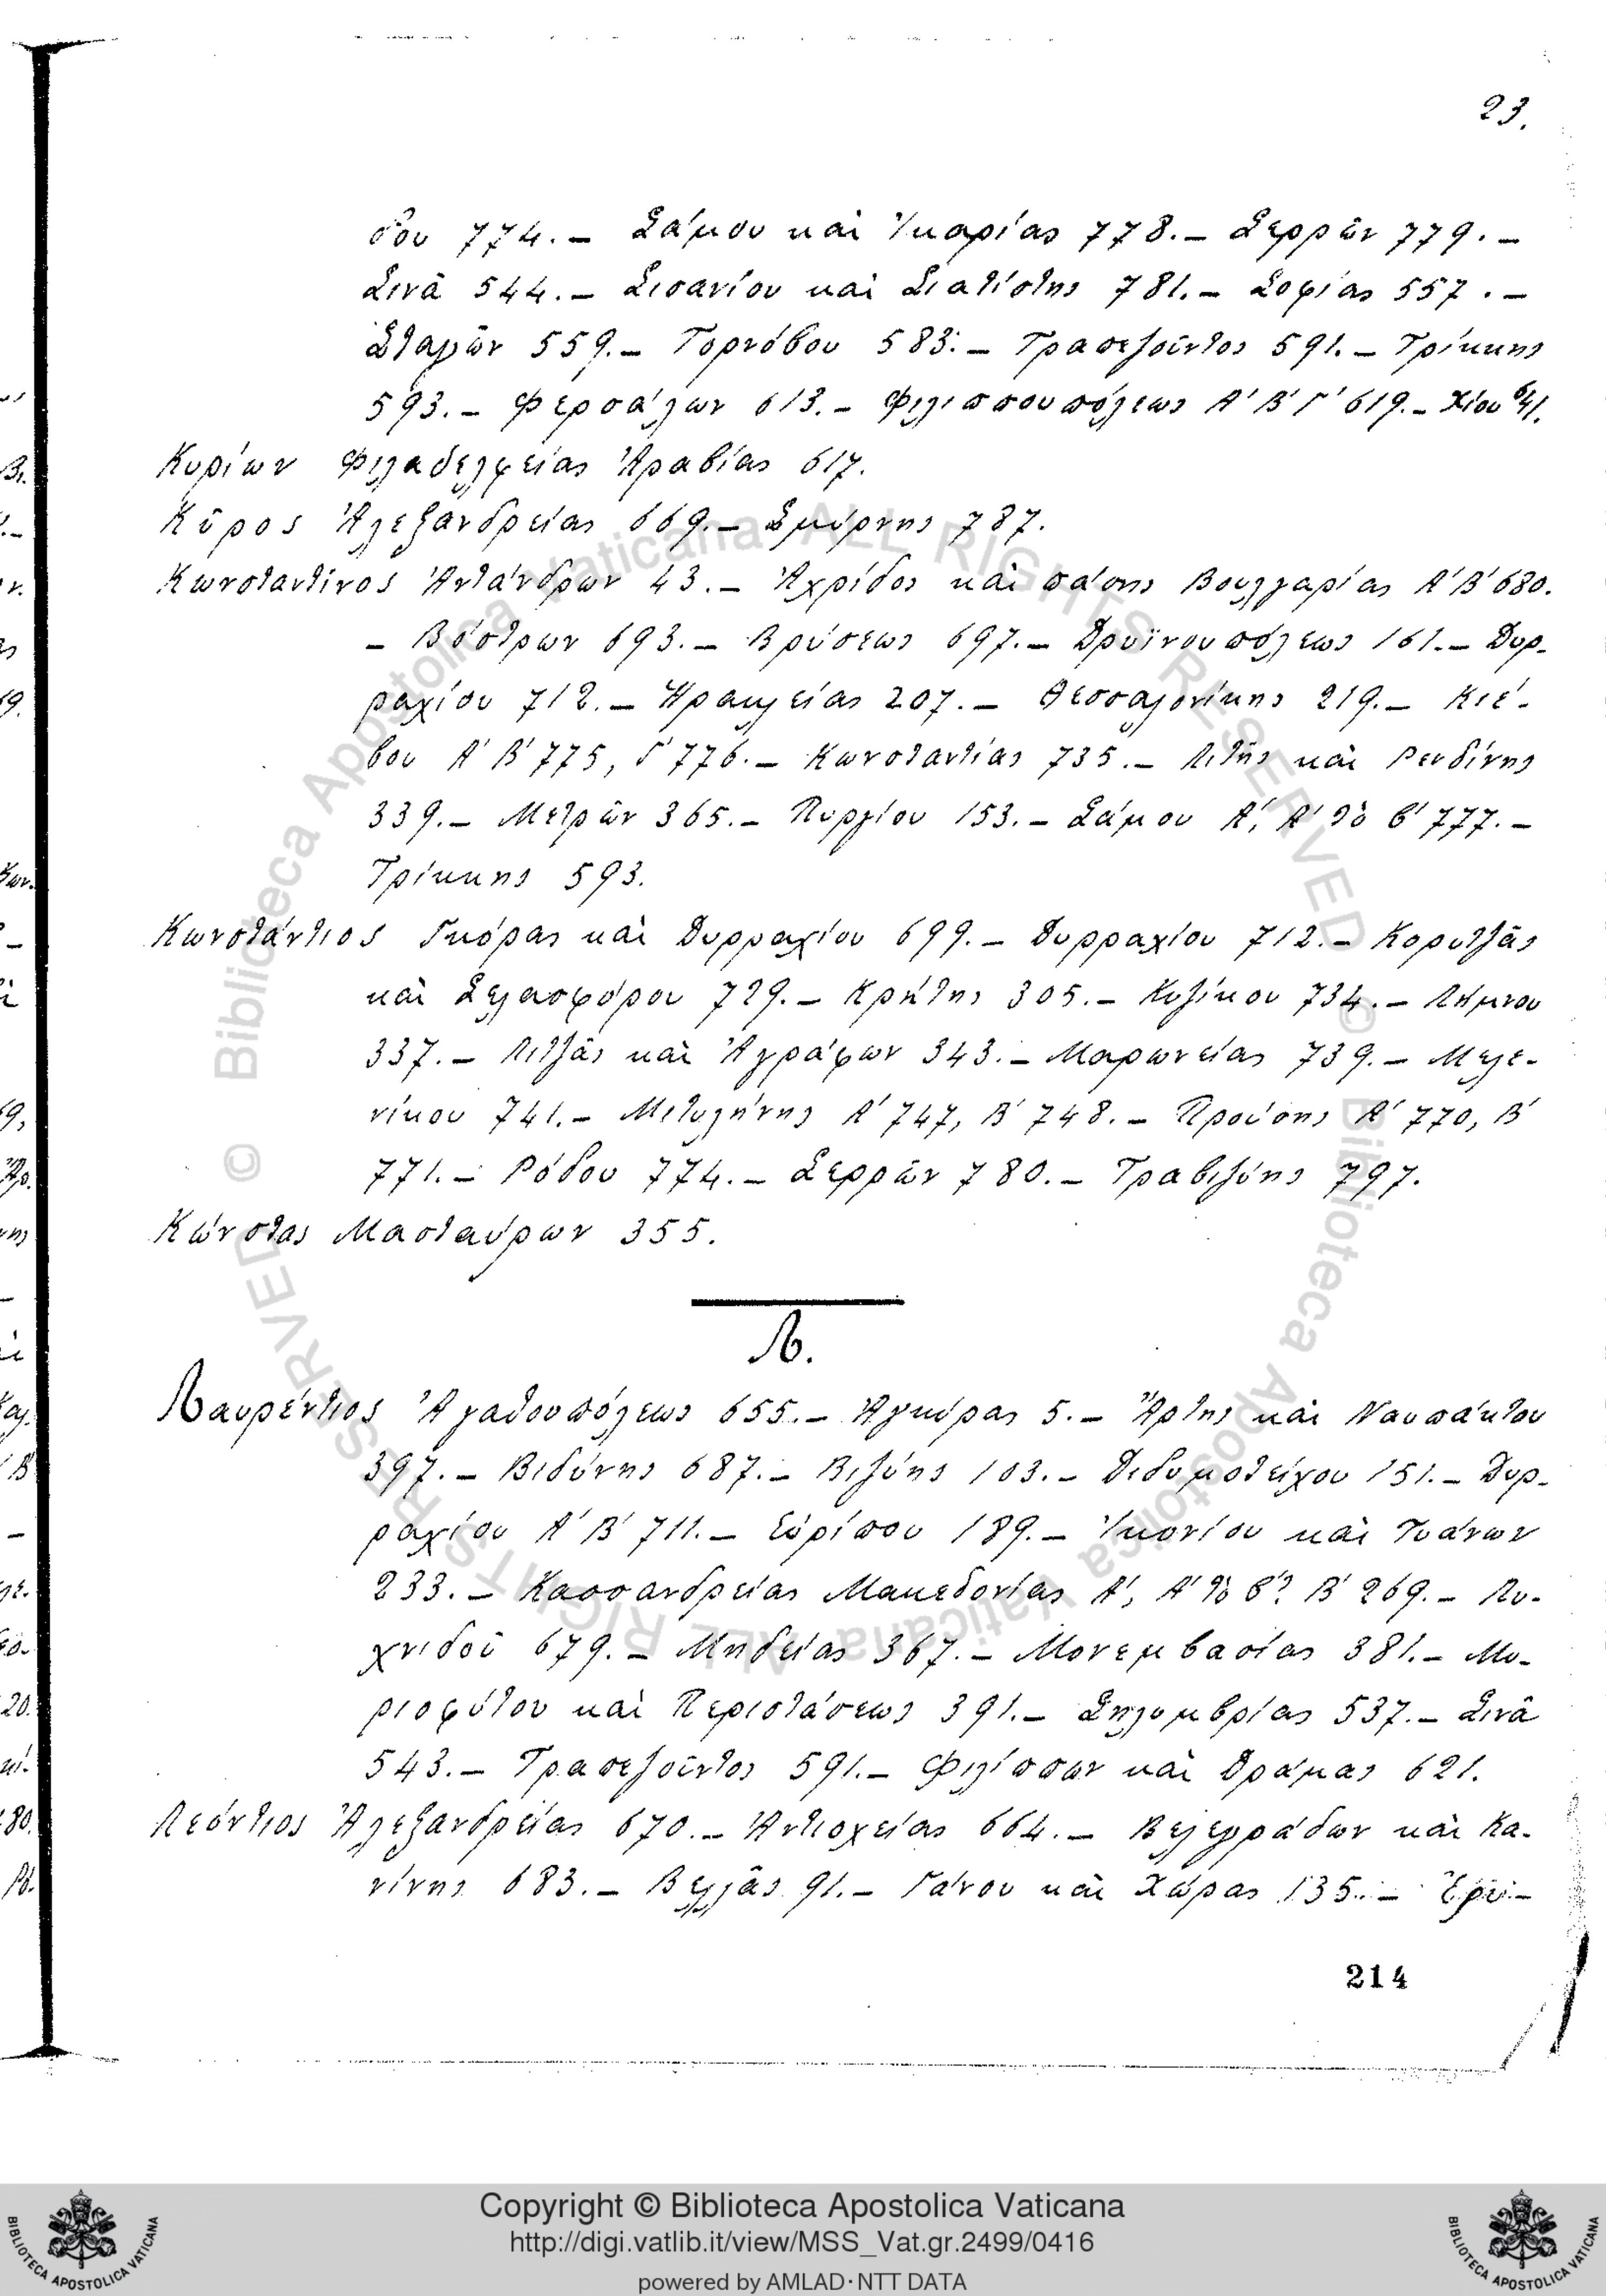 23.
δου 774. – Σάμου καὶ Ἰκαρίας 778. – Σερρῶν 779. –
Σινᾶ 544. – Σισανίου καὶ Σιατίστης 781. – Σοφίας 557. –
Σταγῶν 559. – Τορνόβου 583. – Τραπεζοῦντος 591. – Τρίκκης
593. – Φερσάλων 613. – Φιλιππουπόλεως Α΄ Β΄ Γ΄ 619. – Χίου 641.
Κυρίων Φιλαδελφείας Ἀραβίας 617.
Κῦρος Ἀλεξανδρείας 669. – Σμύρνης 787.
Κωνσταντῖνος Ἀντάνδρων 43. – Ἀχρίδος καὶ πάσης Βουλγαρίας Α΄ Β΄ 680.
– Βόστρων 693. – Βρύσεως 697. – Δρυϊνουπόλεως 161. – Δυρ-
ραχίου 712. – Ἡρακλείας 207. – Θεσσαλονίκης 219. – Κιέ-
βου Α΄ Β΄ 775, Γ΄ 776. – Κωνσταντίας 735. – Λιτῆς καὶ Ρενδίνης
339. – Μετρῶν 365. – Πυργίου 153. – Σάμου Α΄, Α΄ τὸ β΄ 777. –
Τρίκκης 593.
Κωνστάντιος Γκόρας καὶ Δυρραχίου 699. – Δυρραχίου 712. – Κορυτζᾶς
καὶ Σελασφόρου 729. – Κρήτης 305. – Κυζίκου 734. – Λήμνου
337. – Λιτζᾶς καὶ Ἀγράφων 343. – Μαρωνείας 739. – Μελε-
νίκου 741. – Μιτυλήνης Α΄ 747, Β΄ 748. – Προύσης Α΄ 770, Β΄
771. – Ρόδου 774. – Σερρῶν 780. – Τραβιζύης 797.
Κώνστας Μασταύρων 355.
Λ.
Λαυρέντιος Ἀγαθουπόλεως 655. – Ἀγκύρας 5. – Ἄρτης καὶ Ναυπάκτου
397. – Βιδύνης 687. – Βιζύης 103. – Διδυμοτείχου 151. – Δυρ-
ραχίου Α΄ Β΄ 711. – Εὐρίπου 189. – Ἰκονίου καὶ Τυάνων
233. – Κασσανδρείας Μακεδονίας Α΄, Α΄ τὸ β΄? Β΄ 269. – Λυ-
χνιδοῦ 679. – Μηδείας 367. – Μονεμβασίας 381. – Μυ-
ριοφύτου καὶ Περιστάσεως 391. – Σηλυμβρίας 537. – Σινᾶ
543. – Τραπεζοῦντος 591. – Φιλίππων καὶ Δράμας 621.
Λεόντιος Ἀλεξανδρείας 670. – Ἀντιοχείας 664. – Βελεγράδων καὶ Κα-
νίνης 683. – Βελλᾶς 91. – Γάνου καὶ Χώρας 135. –
214
Copyright © Biblioteca Apostolica Vaticana
http://digi.vatlib.it/view/MSS_Vat.gr.2499/0416
powered by AMLAD·NTT DATA